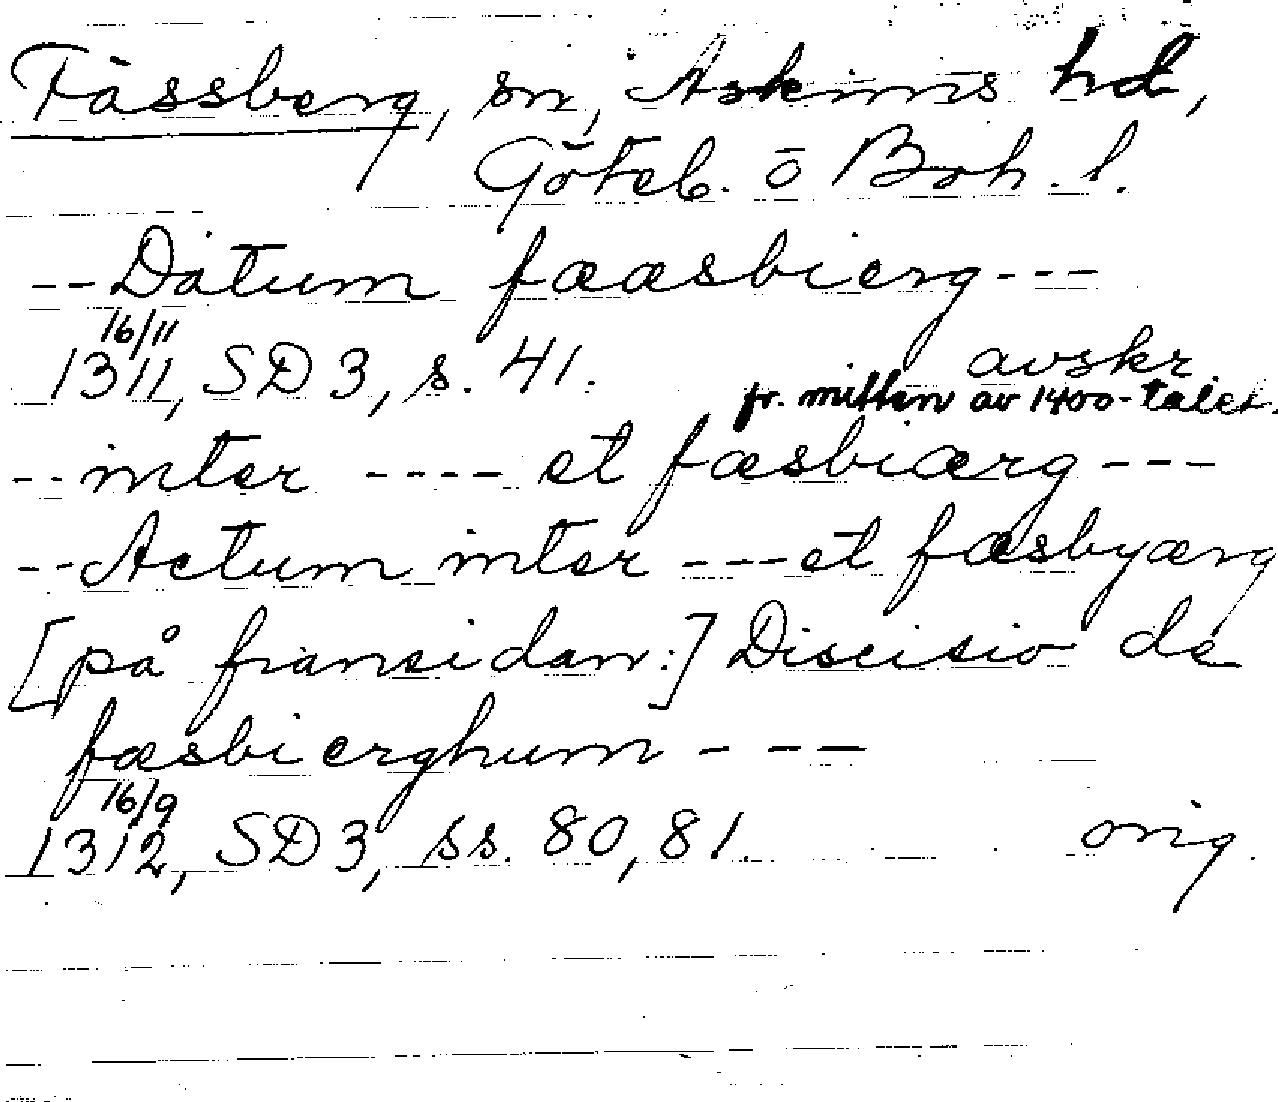 Fässberg, sn, Askims hd,
Göteb. o Boh. l.
-- Datum fææsbierg ---
16/11
1311, SD 3, s. 41. avskr.
fr. mitten av 1400-talet.
-- inter ---- et fæsbiærg ---
-- Actum inter --- et fæsbyærg
[på fransidan:] Discisio de
fæsbierghum - - -
16/9
1312, SD 3, ss. 80, 81. orig.